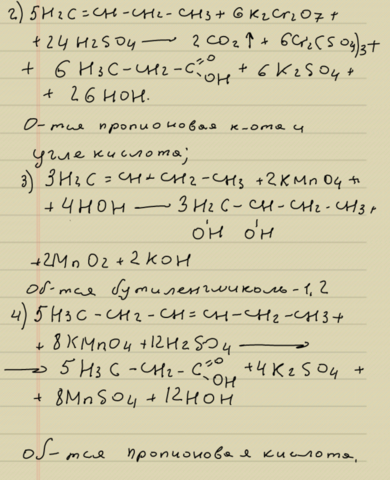 2) 5H2C=CH-CH2-CH3+6K2Cr2O7+
+24H2SO4 — 2CO2↑+6Cr2(SO4)3+
+ 6 H3C-CH2-C=O OH + 6K2SO4 +
+ 26HOH.
О-тся пропионовая к-ота и
угле кислота;
3) 3H2C=CH+CH2-CH3+2KMnO4+
+4HOH — 3H2C-CH-CH2-CH3+
OH OH
+2MnO2+2KOH
Об-тся бутиленгликоль-1,2
4) 5H3C-CH2-CH=CH-CH2-CH3+
+8KMnO4+12H2SO4 ⟶
⟶ 5H3C-CH2-C=O OH +4K2SO4 +
+ 8MnSO4 + 12HOH
об-тся пропионовая кислота.